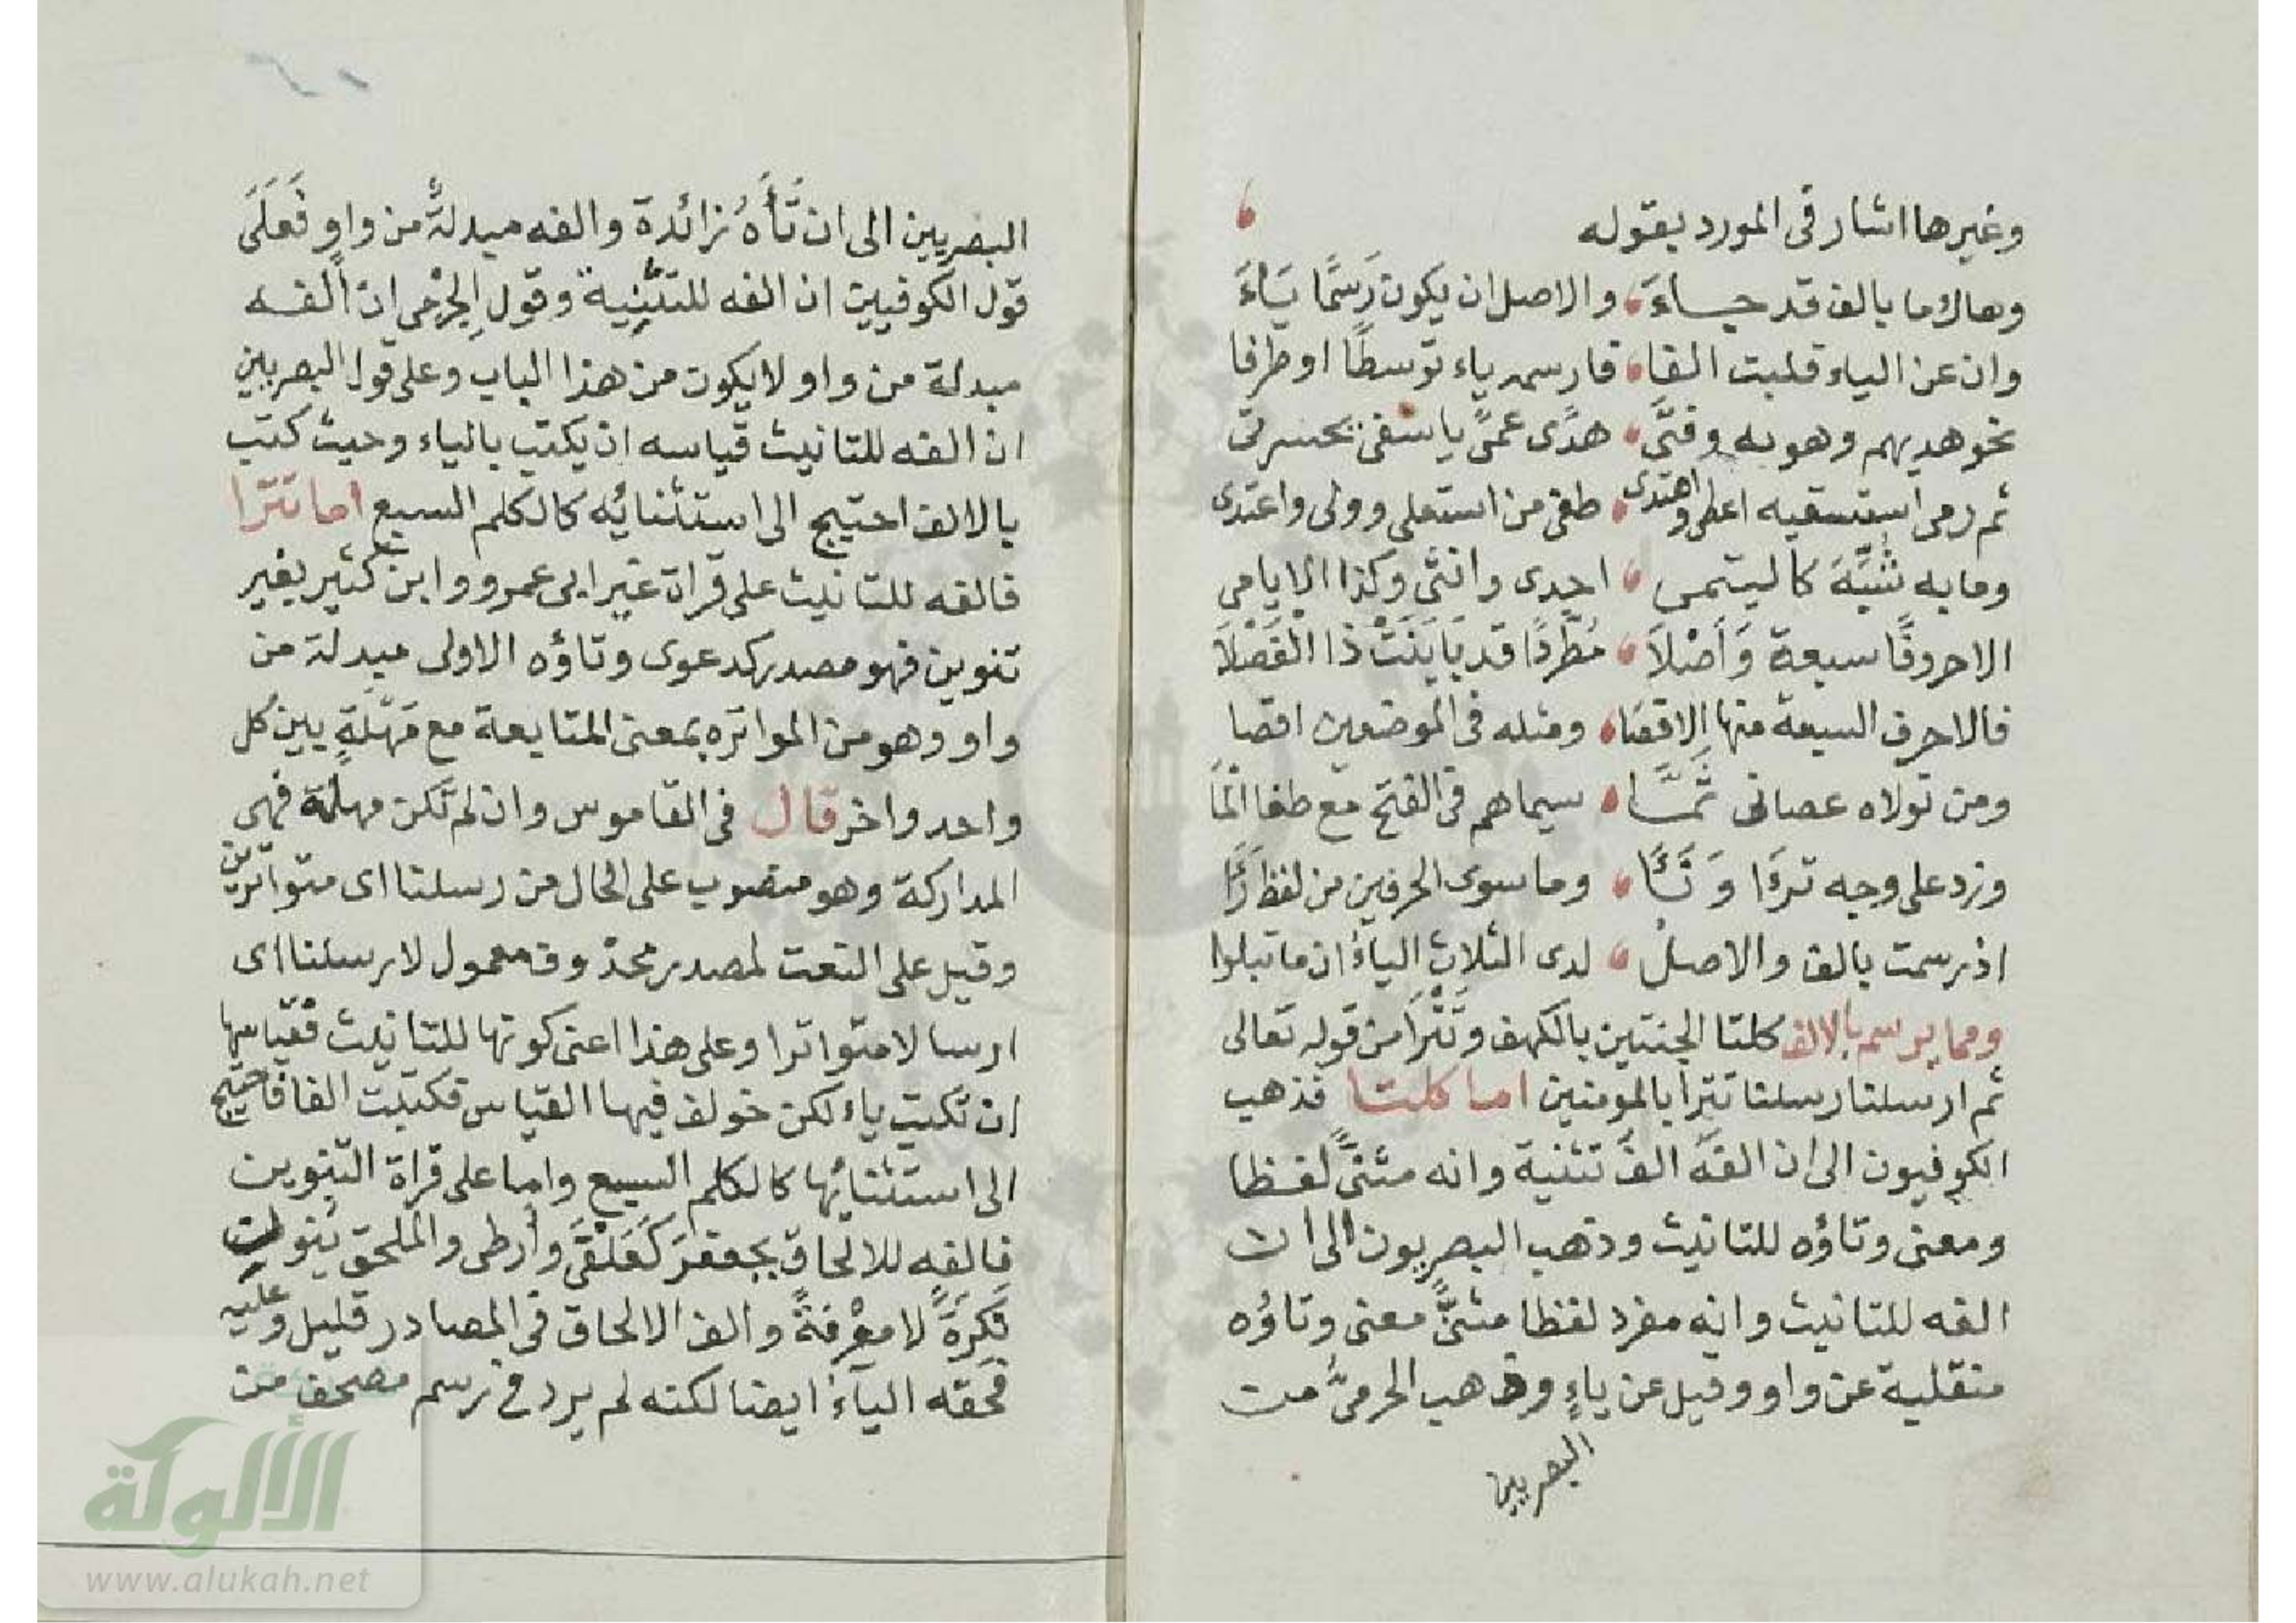 وغيرها اشار فى المورد بقوله
وهاك ما بالف قد جاءَ والاصل ان يكون رَسمًا يَاءَ
وان عن الياء قلبت الفا فارسمه ياء توسطًا او طرفا
نحو هديهم وهويه وفتًى هدًى عمًى ياسفى يحسرتى
ثم رمى استسقيه اعطى واهتدى طغى من استعلى وولى واعتدى
وما به شُبِّهَ كاليتمى احدى وانثى وكذا الايامى
الا حروفًا سبعة وَأَصْلَا مُطَّرِدًا قد بَايَنَتْ ذا الْفَصْلَا
فالاحرف السبعة منها الاقصا ومثله فى الموضعين اقصا
ومن تولاه عصانى ثُمَّا سيماهم فى الفتح مع طغا الْمَا
وزد على وجه تراءا وَنَئَا وما سوى الحرفين من لفظ رَءَا
اذ رسمت بالف والاصلُ لدى الثلاثِ الياءُ ان ما تبلوا
ومما يرسم بالالف كلتا الجنتين بالكهف وتَتْرَا من قوله تعالى
ثم ارسلنا رسلنا تترا بالمومنين اما كلتا فذهب
الكوفيون الى ان الفَه الفُ تثنية وانه مثنًّى لفظا
ومعنى وتاؤه للتانيث وذهب البصريون الى ان
الفه للتانيث وانه مفرد لفظا مثنًّى معنى وتاؤه
منقلبة عن واو وقيل عن ياءٍ وذهب الجرمىُّ من
البصريين
البصريين الى ان تَاءَهُ زائدة والفه مبدلةٌ من واوٍ فَعَلَى
قول الكوفيين ان الفه للتثنية وقولِ الجرْمي ان الفه
مبدلة من واو لا يكون من هذا الباب وعلى قول البصريين
ان الفه للتانيث قياسه ان يكتب بالياء وحيث كتب
بالالف احتيج الى استثنائه كالكلم السبع اما تترا
فالفه للتانيث على قراة غير ابى عمرو وابن كثير بغير
تنوين فهو مصدر كدعوى وتاؤه الاولى مبدلة من
واو وهو من المواتره بمعنى المتابعة مع مَهْلَةٍ بين كل
واحد واخر قال فى القاموس وان لم تكن مهلة فهى
المداركة وهو منصوب على الحال من رسلنا اى متواترين
وقيل على النعت لمصدر محذوف معمول لارسلنا اى
ارسالا متواترا وعلى هذا اعنى كونها للتانيث فقياسها
ان تكتب ياء لكن خولف فيها القياس فكتبت الفا فاحتيج
الى استثنائها كالكلم السبع واما على قراة التنوين
فالفه للالحاق بجعفرَ كَعَلْقًى وأرطى والملحق يُنون
نَكِرَةً لا مَعْرِفةً والف الالحاق فى المصادر قليل وعليه
فحقه الياءُ ايضا لكنه لم يرد فى رسم مصحف من
الألوكة
www.alukah.net